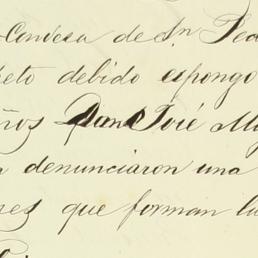 Condesa de Sn Ped
eto debido espongo
ños Juan José M
denunciaron una
nes que forman la